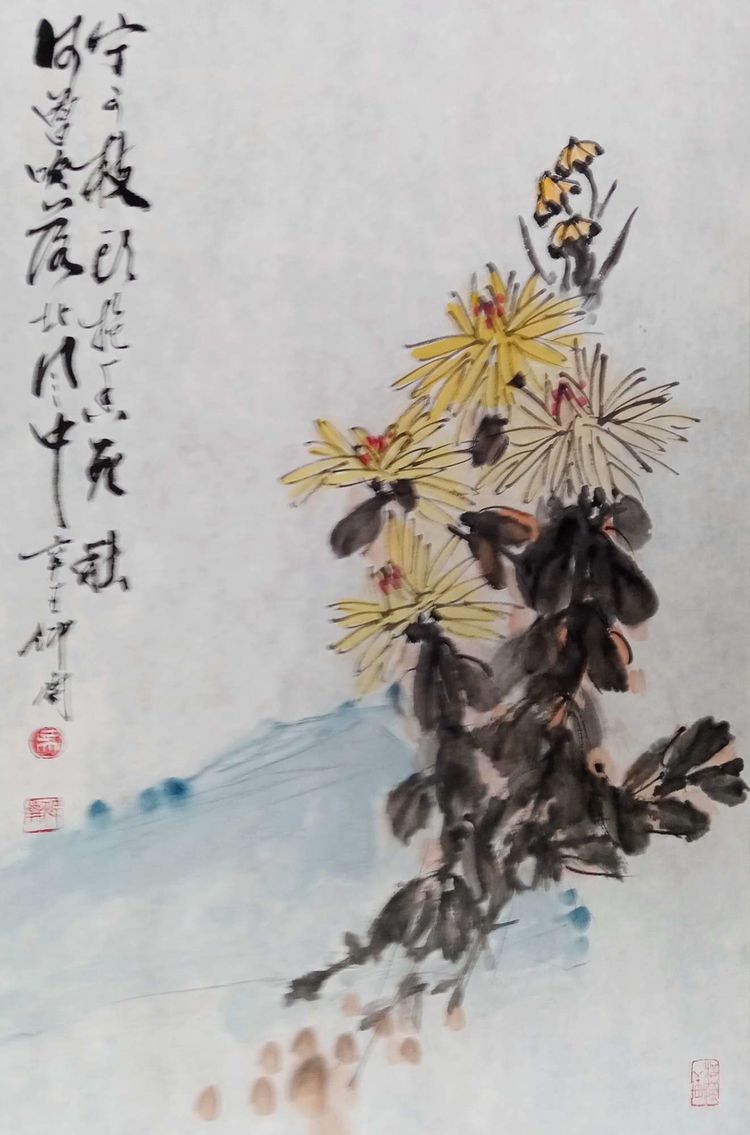 宁可枝头抱香死
何曾吹落北风中
辛丑仲